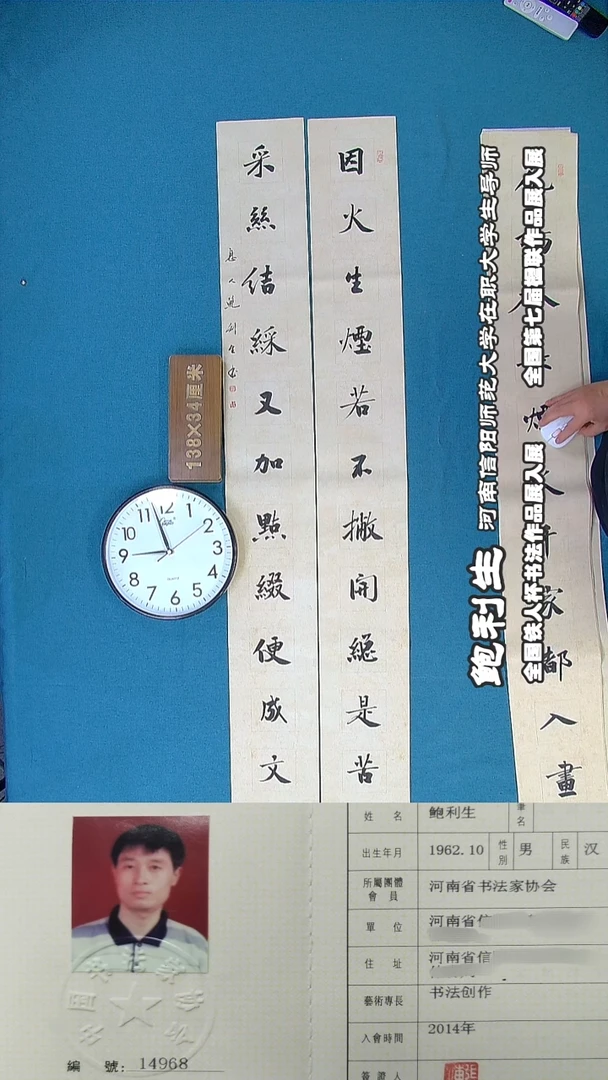 因火生煙若不撇開總是苦
采絲結綵又加點綴便成文
息人鲍利生书
138×34厘米
12
1
2
3
4
5
6
7
8
9
10
11
QUARTZ
鲍利生 河南信阳师范大学在职大学生导师
全国铁人杯书法作品展入展 全国第七届楹联作品展入展
家都入畫
編 號: 14968
姓名 鲍利生 筆名
出生年月 1962.10 性別 男 民族 汉
所屬團體會員 河南省书法家协会
單位 河南省信
住址 河南省信
藝術專長 书法创作
入會時間 2014年
簽證人